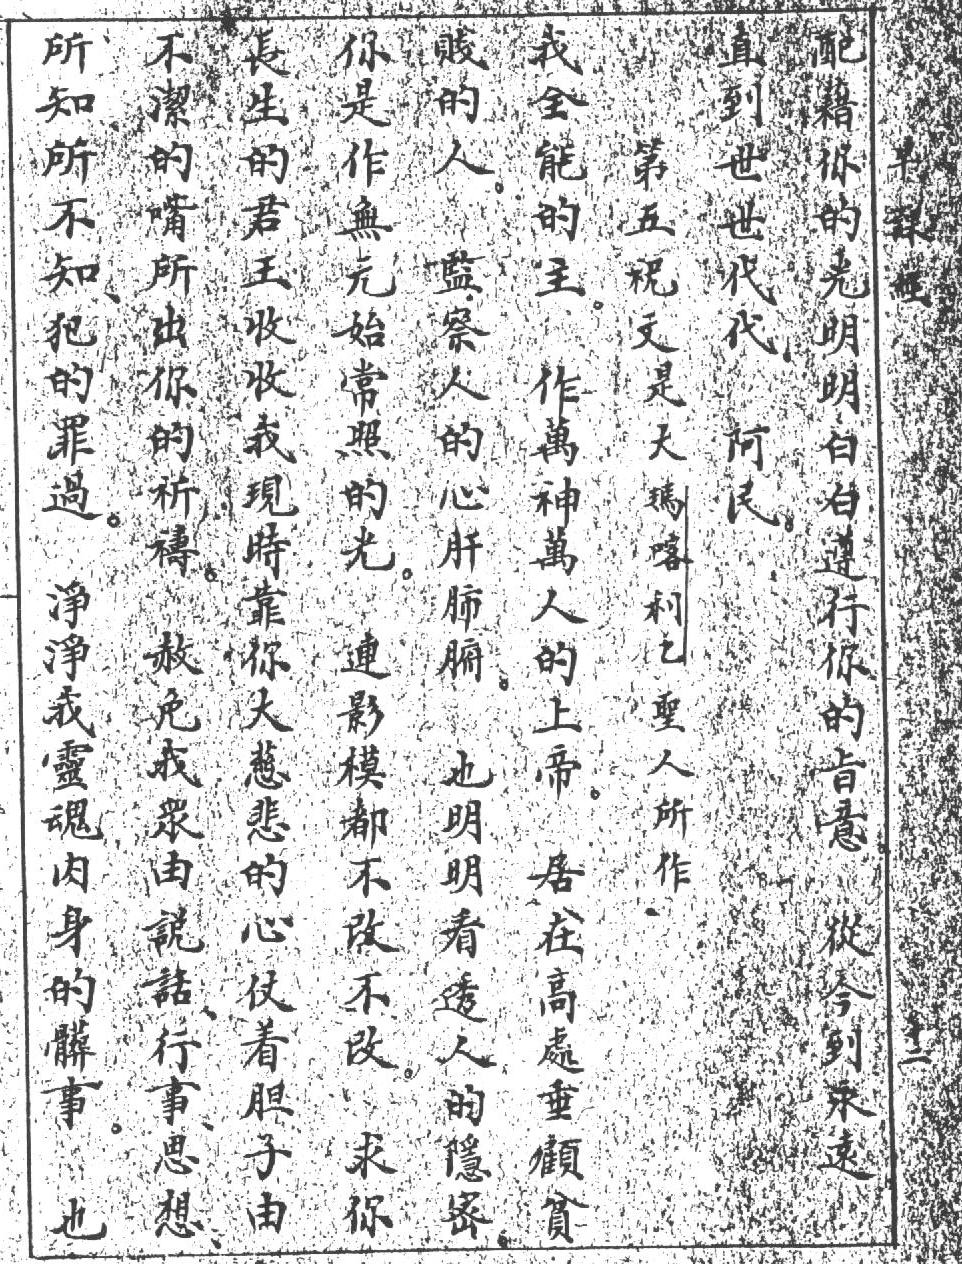 早課經 十二
配藉你的光明明白白遵行你的旨意 從今到永遠
直到世世代代。 阿民。
第五祝文是大瑪喀利乞聖人所作。
我全能的主。 作萬神萬人的上帝。 居在高處垂顧貧
賤的人。 監察人的心肝肺腑。 也明明看透人的隱密
你是作無元始常照的光。 連影模都不改不改。 求你
長生的君王收收我現時靠你大慈悲的心仗着胆子由
不潔的嘴所出你的祈禱。 赦免我眾由說話、行事、思想、
所知所不知、犯的罪過。 淨淨我靈魂肉身的髒事。 也